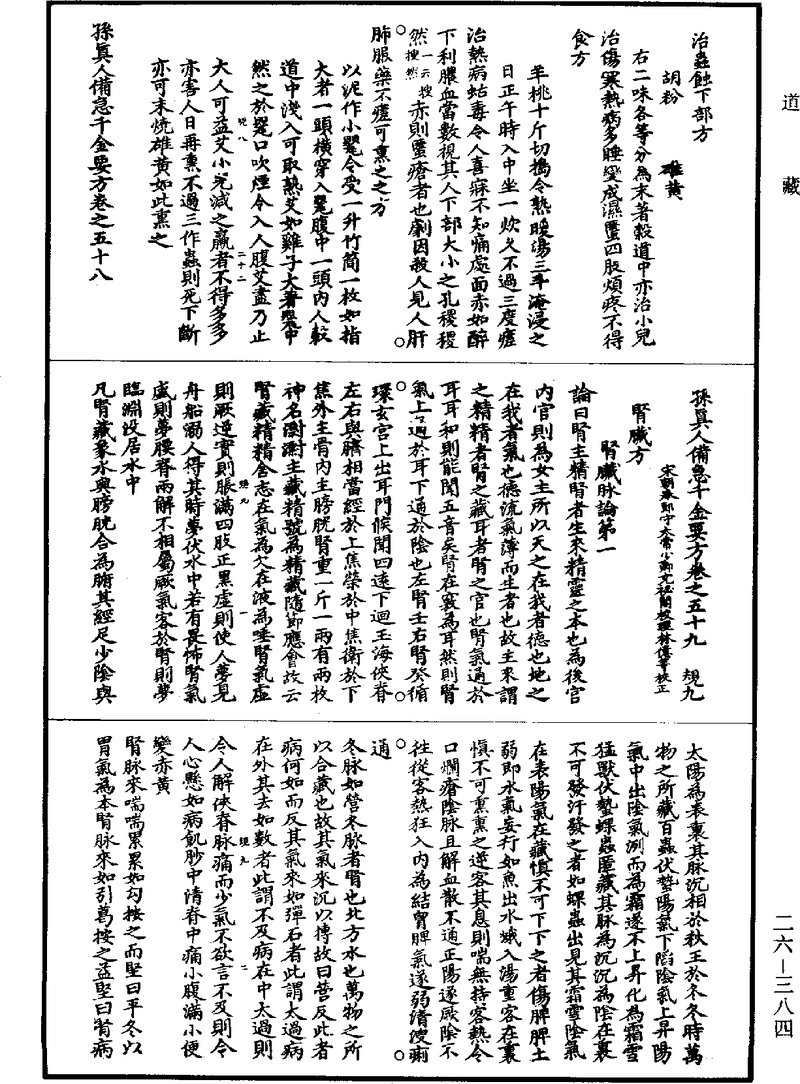 道藏
治蟲蝕下部方
胡粉　雄黃
右二味各等分為末著穀道中亦治小兒
治傷寒熱病多睡變成濕䘌四肢煩疼不得
食方
羊桃十斤切擣令熟暖湯三斗淹浸之
日正午時入中坐一炊久不過三度瘥
治熱病蛄毒令人喜寐不知痛處面赤如醉
下利膿血當數視其人下部大小之孔稷稷
然一云搜搜然赤則䘌瘡者也劇因殺人見人肝
肺服藥不瘥可熏之之方
以泥作小甖令受一升竹筒一枚如指
大者一頭橫穿入甖腹中一頭內人穀
道中淺入可取熟艾如雞子大著甖中
然之於甖口吹煙令入人腹艾盡乃止
規八　二十二
大人可益艾小兒減之羸者不得多多
亦害人日再熏不過三作蟲則死下斷
亦可末燒雄黃如此熏之
孫真人備急千金要方卷之五十八
孫真人備急千金要方卷之五十九　規九
宋朝奉郎守太常少卿充祕閣校理林億等校正
腎臟方
腎臟脉論第一
論曰腎主精腎者生來精靈之本也為後宮
內官則為女主所以天之在我者德也地之
在我者氣也德流氣薄而生者也故主來謂
之精精者腎之藏耳者腎之官也腎氣通於
耳耳和則能聞五音矣腎在竅為耳然則腎
氣上通於耳下通於陰也左腎壬右腎癸循
環玄宮上出耳門候聞四遠下迴玉海俠脊
左右與臍相當經於上焦榮於中焦衛於下
焦外主骨內主膀胱腎重一斤一兩有兩枚
神名㴃㴃主藏精號為精藏隨節應會故云
腎藏精精舍志在氣為欠在液為唾腎氣虛
則厥逆實則脹滿四肢正黑虛則使人夢見
規九　一
舟船溺人得其時夢伏水中若有畏怖腎氣
盛則夢腰脊兩解不相屬厥氣客於腎則夢
臨淵沒居水中
凡腎藏象水與膀胱合為腑其經足少陰與
太陽為表裏其脉沉相於秋王於冬冬時萬
物之所藏百蟲伏蟄陽氣下陷陰氣上昇陽
氣中出陰氣冽而為霜遂不上昇化為霜雪
猛獸伏蟄蜾蟲匿藏其脉為沉沉為陰在裏
不可發汗發之者如蜾蟲出見其霜雪陰氣
在表陽氣在藏慎不可下下之者傷脾脾土
弱即水氣妄行如魚出水蛾入湯重客在裏
慎不可熏熏之逆客其息則喘無持客熱令
口爛瘡陰脉且解血散不通正陽遂厥陰不
往從客熱狂入內為結胷脾氣遂弱清溲痢
通
冬脉如營冬脉者腎也北方水也萬物之所
以合藏也故其氣來沉以摶故曰營反此者
病何如而反其氣來如彈石者此謂太過病
在外其去如數者此謂不及病在中太過則
規九　二
令人解㑊脊脉痛而少氣不欲言不及則令
人心懸如病飢䏚中清脊中痛小腹滿小便
變赤黃
腎脉來喘喘累累如勾按之而堅曰平冬以
胃氣為本腎脉來如引葛按之益堅曰腎病
二六—三八四